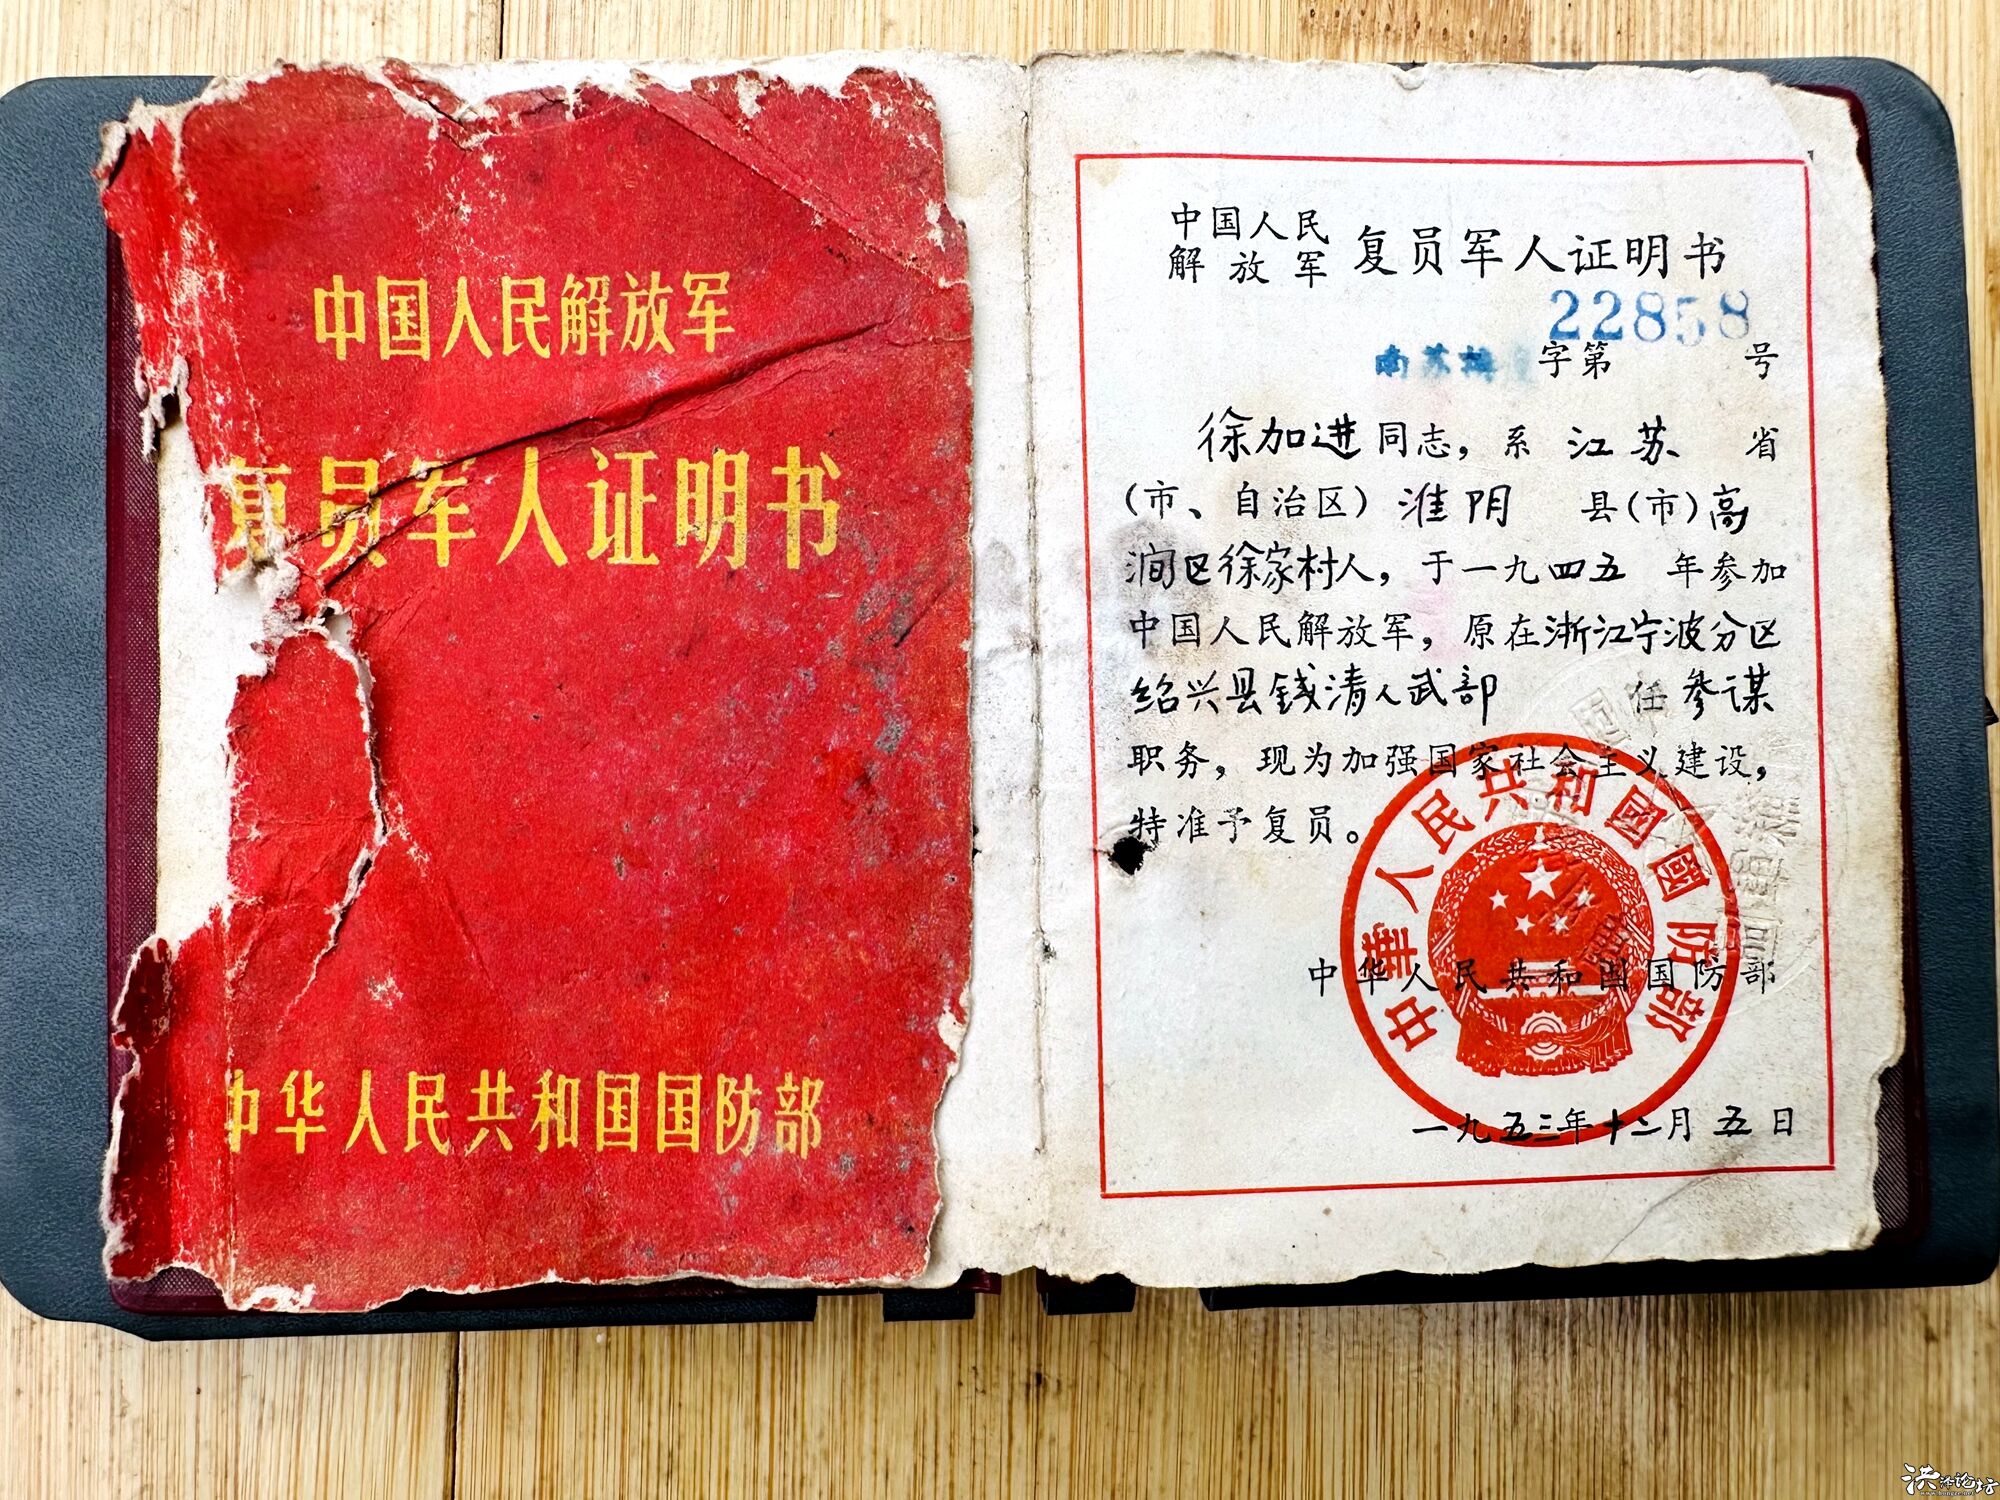 中国人民解放军
复员军人证明书
中华人民共和国国防部
中国人民
解放军 复员军人证明书
22858
南苏 字第 号
徐加进同志，系 江苏 省
（市、自治区）淮阴 县（市）高
涧区徐家村人，于一九四五 年参加
中国人民解放军，原在浙江宁波分区
绍兴县钱清人武部 任参谋
职务，现为加强国家社会主义建设，
特准予复员。
中華人民共和國國防部
中华人民共和国国防部
一九五三年十二月五日
洪泽论坛